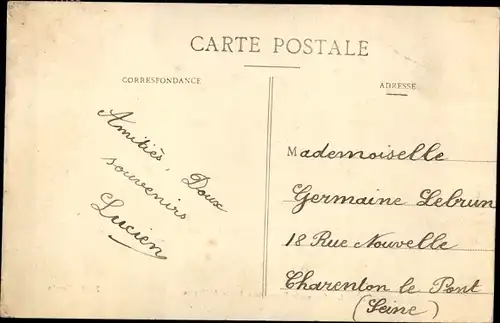 CARTE POSTALE
CORRESPONDANCE
Amitiés, Doux
souvenirs
Lucien
ADRESSE
Mademoiselle
Germaine Lebrun
18 Rue Nouvelle
Charenton le Pont
(Seine)